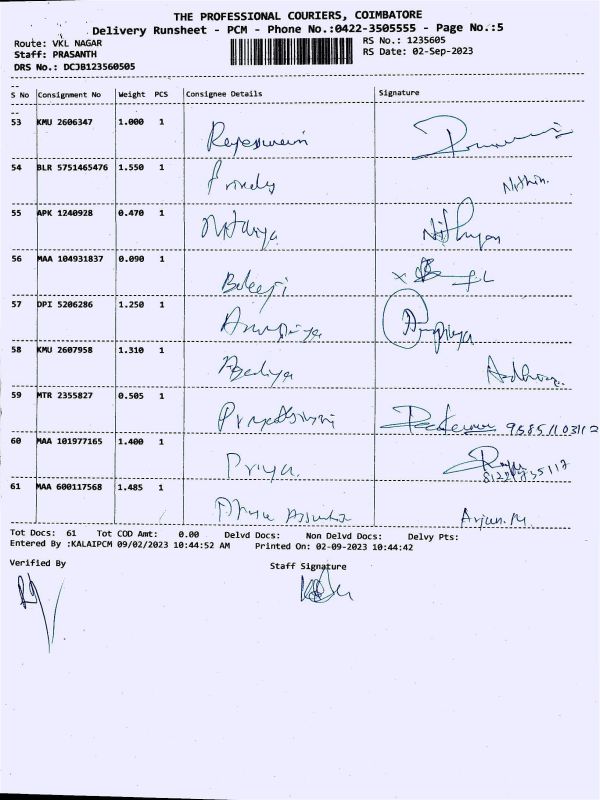 THE PROFESSIONAL COURIERS, COIMBATORE
Delivery Runsheet - PCM - Phone No.:0422-3505555 - Page No.:5
Route: VKL NAGAR RS No.: 1235605
Staff: PRASANTH RS Date: 02-Sep-2023
DRS No.: DCJB123560505
S No Consignment No Weight PCS Consignee Details Signature
53 KMU 2606347 1.000 1
54 BLR 5751465476 1.550 1 Nithin.
55 APK 1240928 0.470 1
56 MAA 104931837 0.090 1 Balaji
57 DPI 5206286 1.250 1 Anupriya
58 KMU 2607958 1.310 1
59 MTR 2355827 0.505 1
60 MAA 101977165 1.400 1 Priya.
61 MAA 600117568 1.485 1 Arjun.M.
Tot Docs: 61 Tot COD Amt: 0.00 Delvd Docs: Non Delvd Docs: Delvy Pts:
Entered By :KALAIPCM 09/02/2023 10:44:52 AM Printed On: 02-09-2023 10:44:42
Verified By Staff Signature